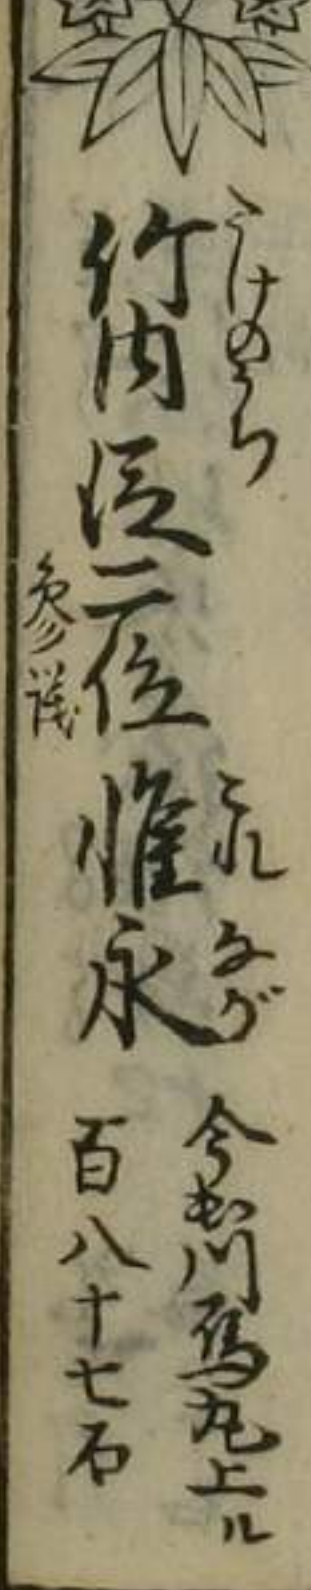 たけのうち
竹内従二位惟永
これ なが
参議
今出川烏丸上ル
百八十七石